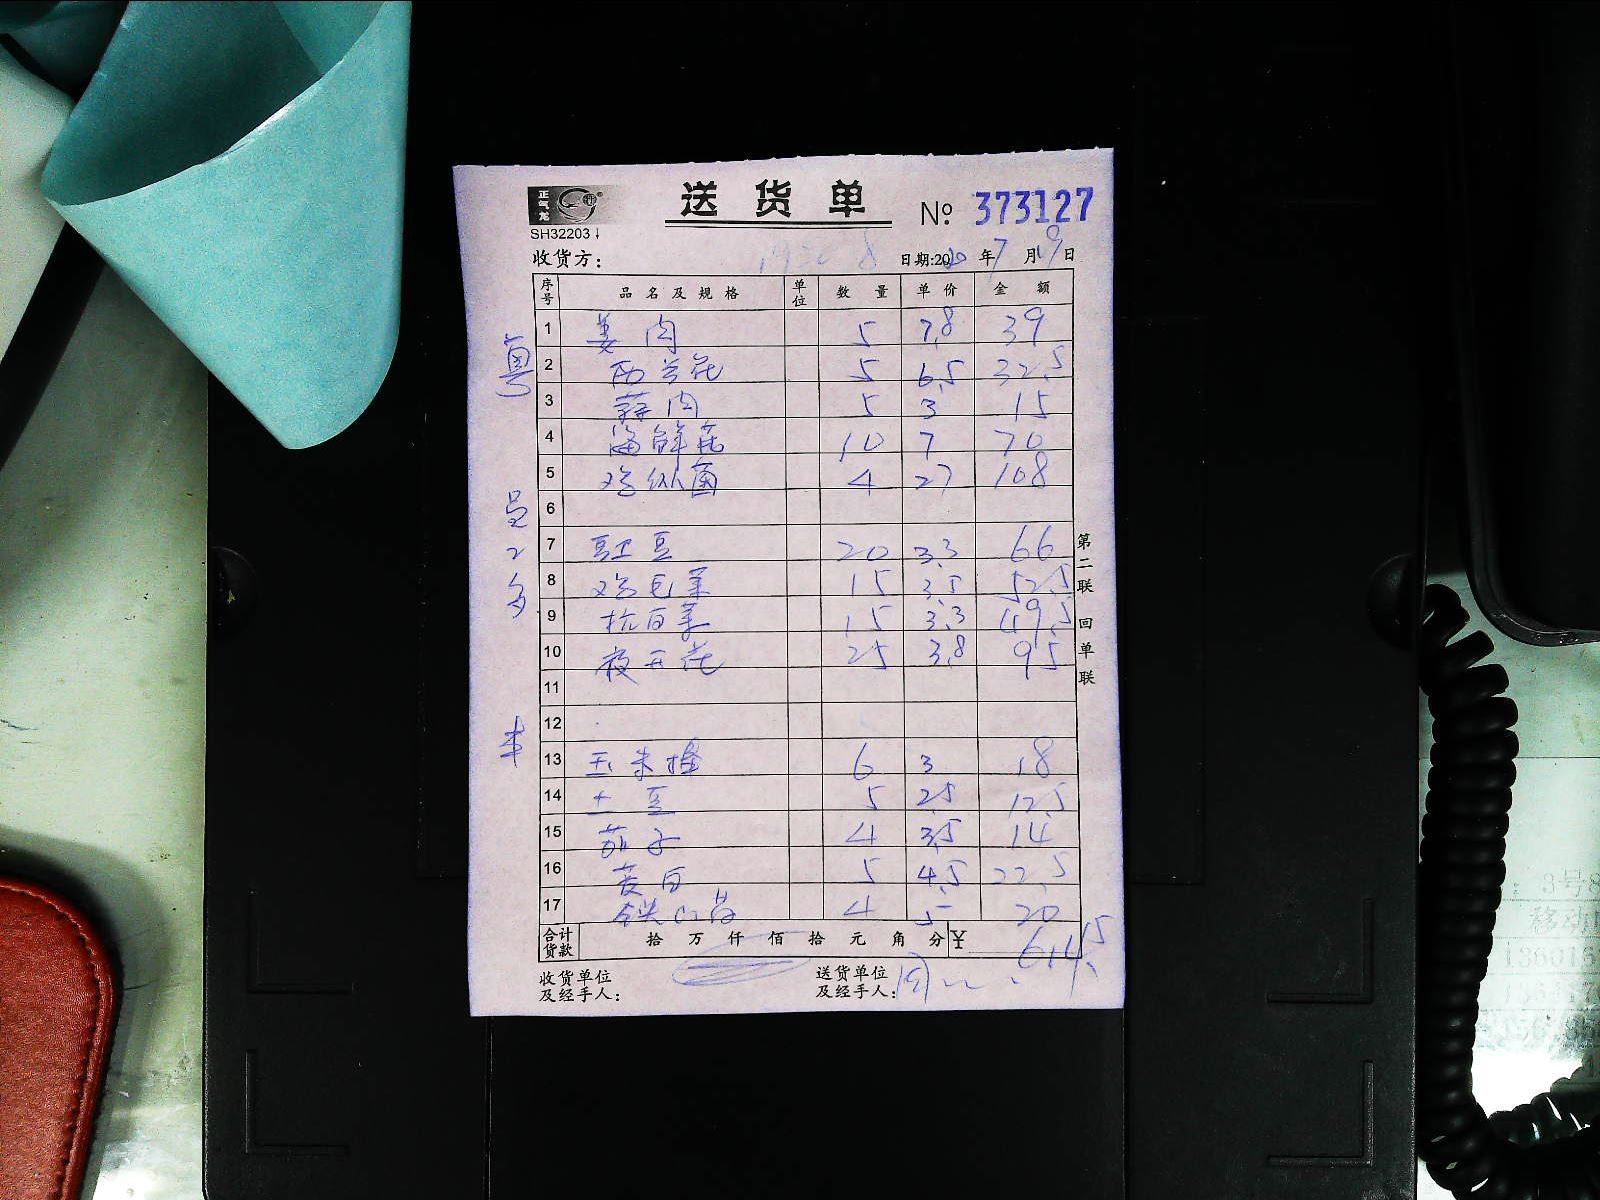 正气龙
送货单
№ 373127
SH32203
收货方:
日期:2020年7月19日
序号 品名及规格 单位 数量 单价 金额
1 姜肉 5 7.8 39
2 西兰花 5 6.5 32.5
3 蒜肉 5 3 15
4 海鲜菇 10 7 70
5 鸡枞菌 4 27 108
6
7 豇豆 20 3.3 66
8 鸡毛菜 15 3.5 52.5
9 杭白菜 15 3.3 49.5
10 夜开花 25 3.8 95
11
12
13 玉米 6 3 18
14 土豆 5 2.5 12.5
15 茄子 4 3.5 14
16 茭白 5 4.5 22.5
17 铁山药 4 5 20
合计货款 拾 万 仟 佰 拾 元 角 分 ¥ 614.5
收货单位及经手人:
送货单位及经手人: 周
第二联 回单联
粤
丰
3号8
移动